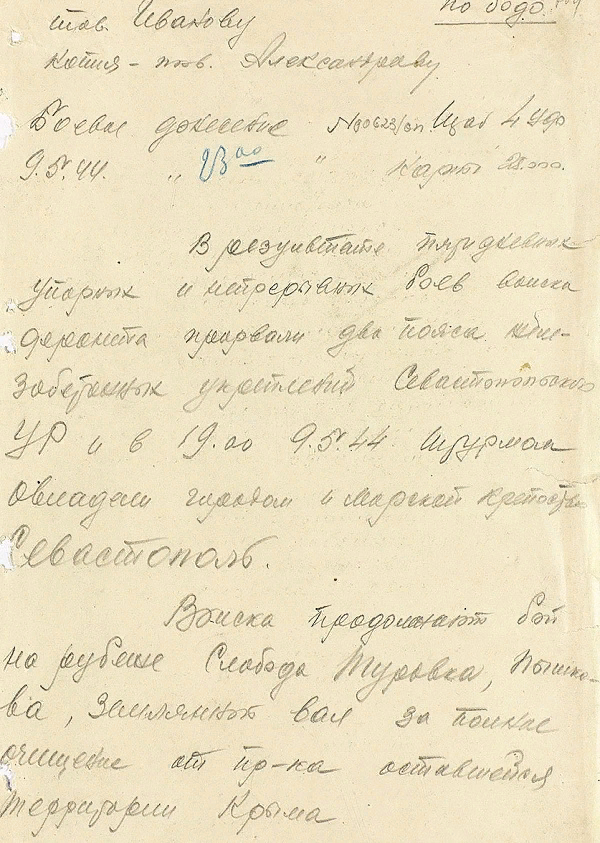 по бодо
тов. Иванову
копия – тов. Александрову
Боевое донесение №00623/оп. Штаб 4 УФ
9.5.44. „ 23 00 " карты
В результате пятидневных
упорных и непрерывных боев войска
фронта прорвали два пояса желе-
забетонных укреплений Севастопольского
УР и в 19.00 9.5.44 штурмом
овладели городом и морской крепостью
Севастополь.
Войска продолжают бой
на рубеже Слобода Туровка, Пышко-
ва, Землянный вал за полное
очищение от пр-ка оставшейся
территории Крыма